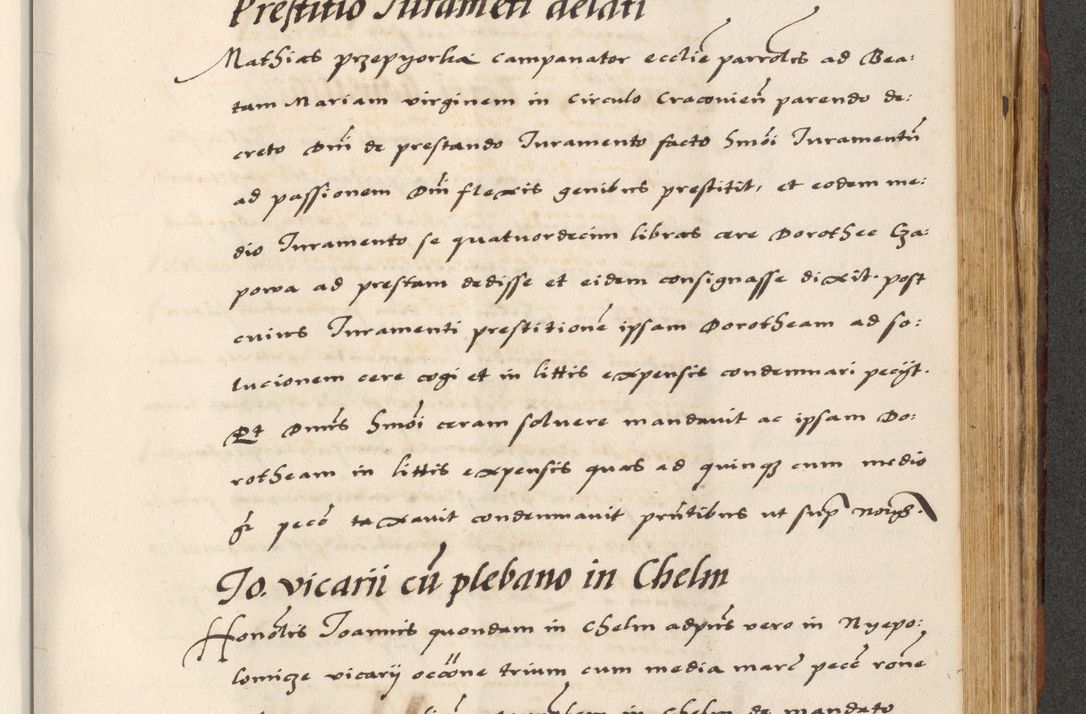 Prestitio Iurameti delati
Mathias przepyorka campanator ecclie parrolis ad Bea:
tam Mariam virginem in circulo Cracovien parendo de:
creto Dni de prestando Iuramento facto hmoi Iuramentu
ad passionem Dni flexis genibus prestitit, et eodem me:
dio Iuramento se quatuordecim libras cere Dorothee Cza:
powa ad prestam dedisse et eidem consignasse dixit. post
cuius Iuramenti prestitione ipsam Dorotheam ad so:
lucionem cere cogi et in littis expensis condemnari peciit.
Et Dnus hmoi ceram solvere mandavit ac ipsam Do:
rotheam in littis expensis quas ad quinq cum medio
gr pecc taxavit condemnavit pntibus ut sup
Io. vicarii cu plebano in Chelm
Honolis Joannis quondam in Chelm adpns vero in Nyepo:
lomicze vicarii occone trium cum media marc pecc rone
in Chelm de mandato